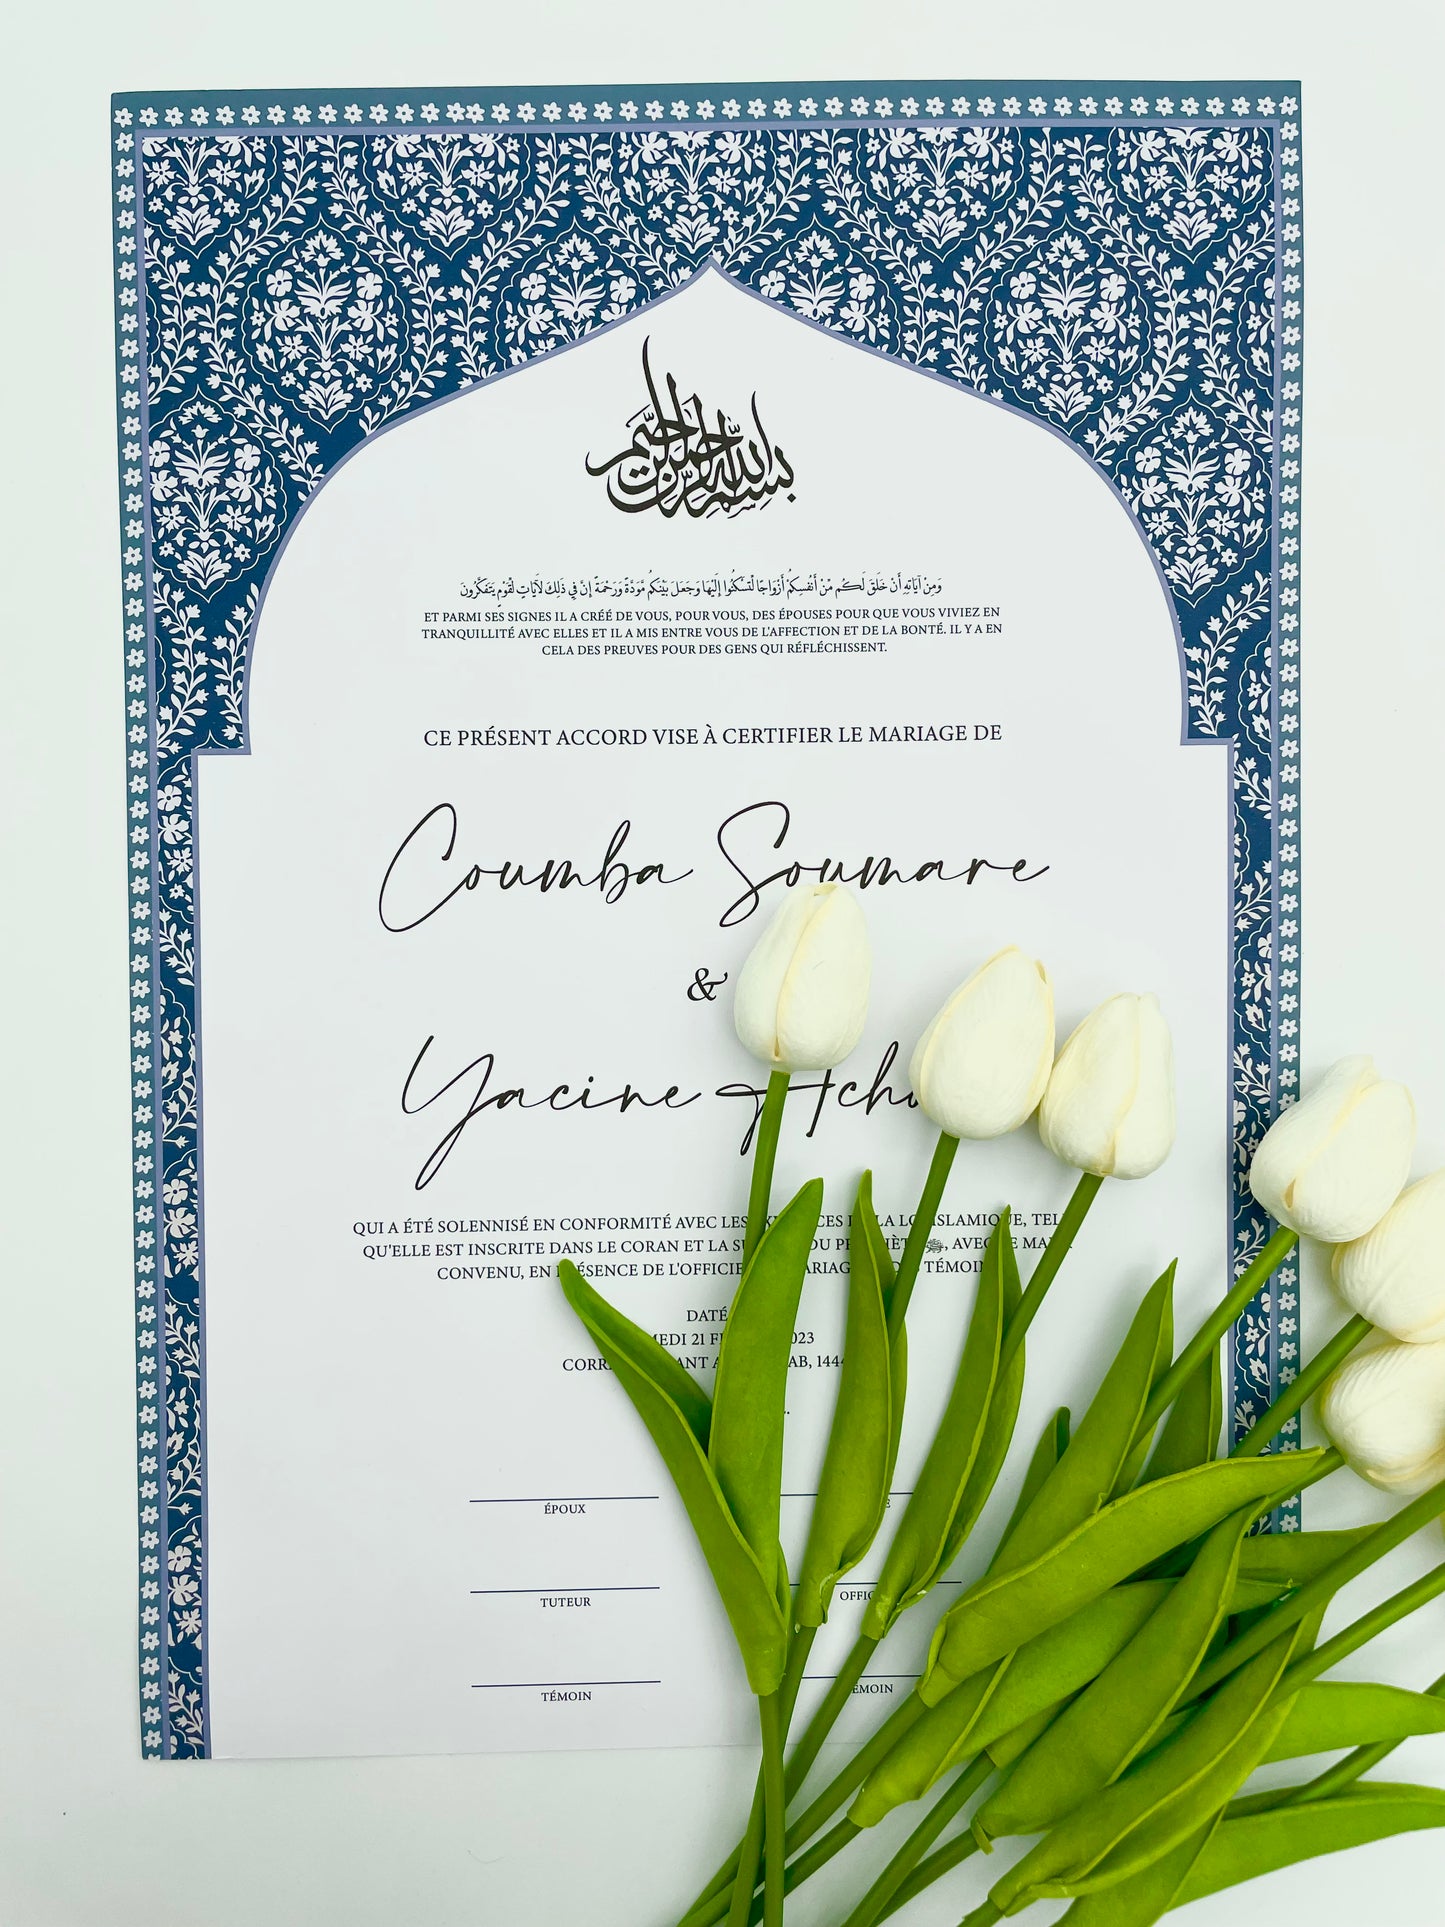 بسم الله الرحمن الرحيم
وَمِنْ آيَاتِهِ أَنْ خَلَقَ لَكُم مِّنْ أَنفُسِكُمْ أَزْوَاجًا لِّتَسْكُنُوا إِلَيْهَا وَجَعَلَ بَيْنَكُم مَّوَدَّةً وَرَحْمَةً إِنَّ فِي ذَٰلِكَ لَآيَاتٍ لِّقَوْمٍ يَتَفَكَّرُونَ
ET PARMI SES SIGNES IL A CRÉÉ DE VOUS, POUR VOUS, DES ÉPOUSES POUR QUE VOUS VIVIEZ EN
TRANQUILLITÉ AVEC ELLES ET IL A MIS ENTRE VOUS DE L'AFFECTION ET DE LA BONTÉ. IL Y A EN
CELA DES PREUVES POUR DES GENS QUI RÉFLÉCHISSENT.
CE PRÉSENT ACCORD VISE À CERTIFIER LE MARIAGE DE
Coumba Soumare
&
Yacine
QUI A ÉTÉ SOLENNISÉ EN CONFORMITÉ AVEC LES LA ISLAMIQUE, TEL
QU'ELLE EST INSCRITE DANS LE CORAN ET LA DU ﷺ, AVEC
CONVENU, EN PRÉSENCE DE L'OFFICIER
DATÉ
21 2023
1444
ÉPOUX
TUTEUR
TÉMOIN